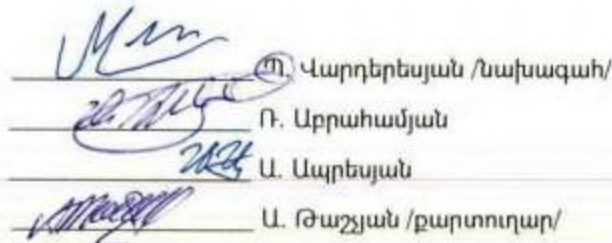 Պ. Վարդերեսյան /նախագահ/
Ռ. Աբրահամյան
Ա. Ապրեսյան
Ա. Թաշչյան /քարտուղար/